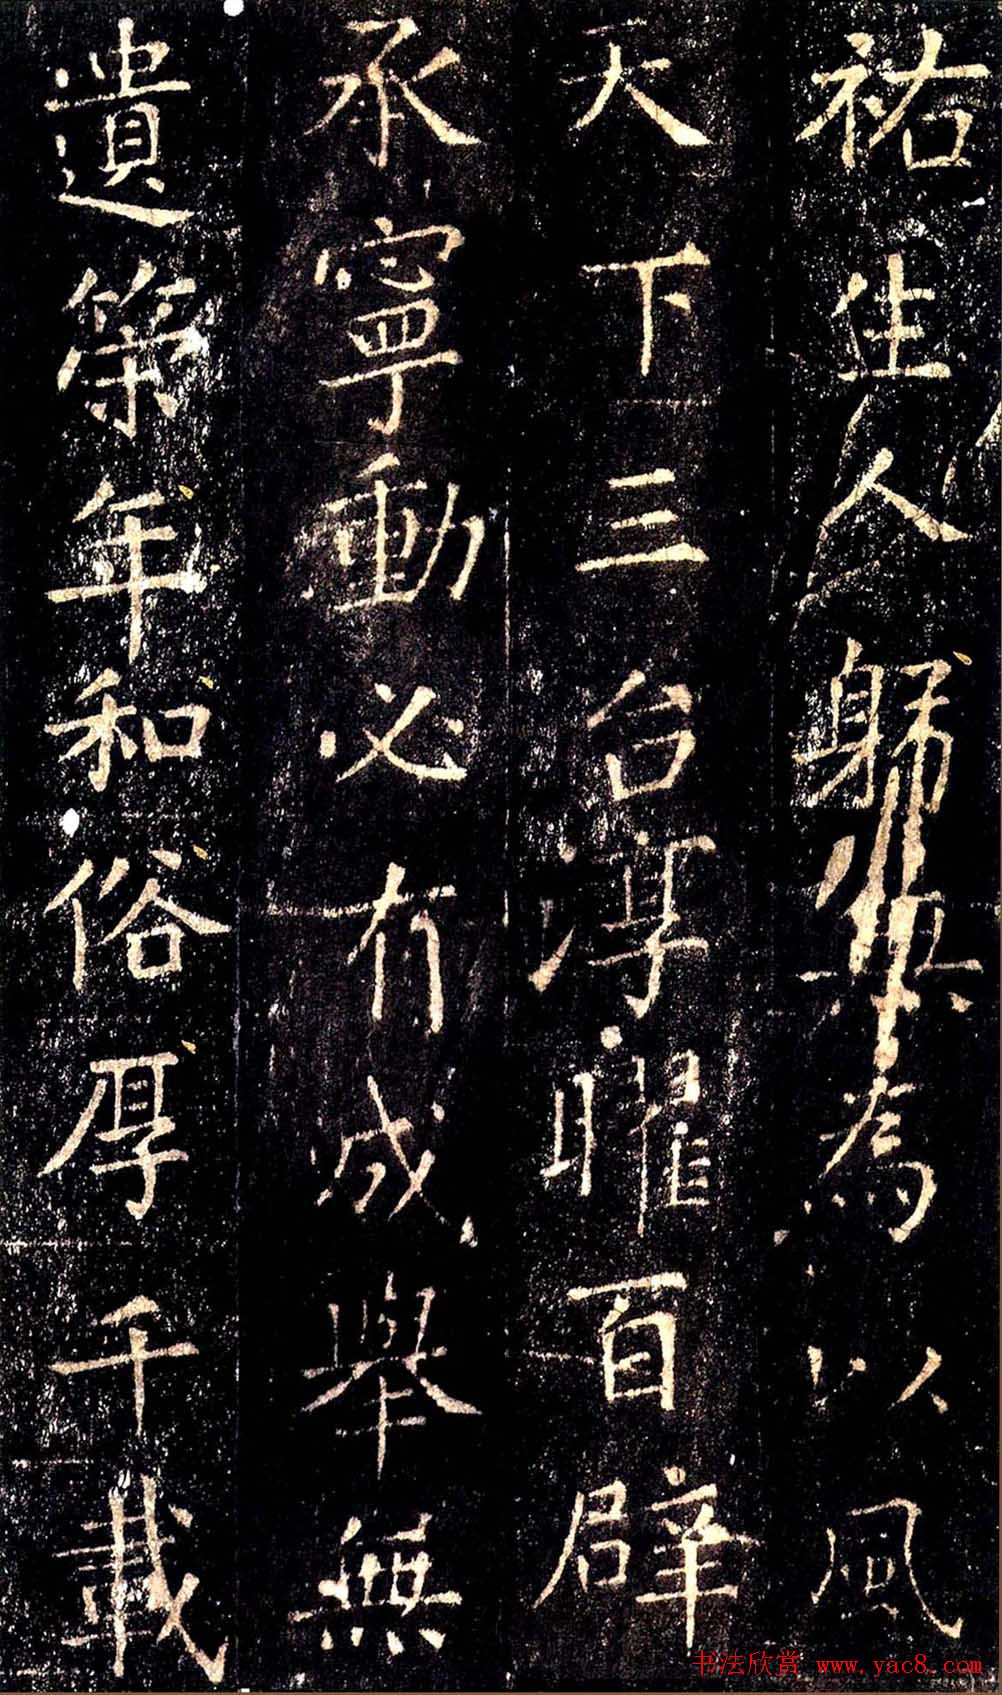 祐生人躬無為以風
天下三台淳曜百辟
承寧動必有成舉無
遺策年和俗厚千載
书法欣赏 www.yac8.com